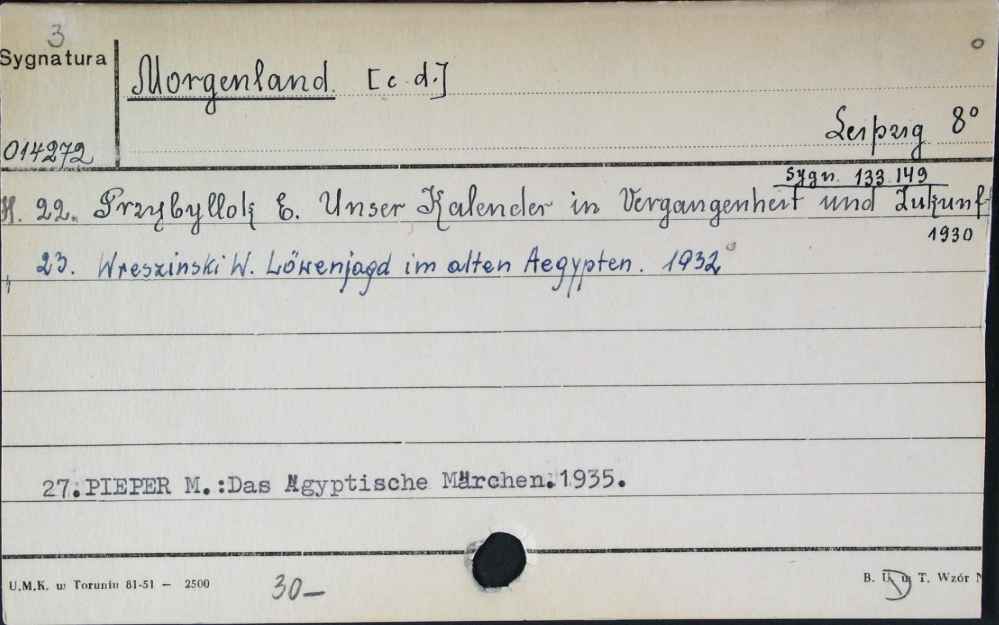 3
Sygnatura
Morgenland. [c. d.]
Leipzig 8°
014272
Sygn. 133.149
H. 22. Przybyllok E. Unser Kalender in Vergangenheit und Zukunf
1930
23. Wreszinski W. Löwenjagd im alten Aegypten. 1932
27. PIEPER M.: Das Ägyptische Märchen. 1935.
U.M.K. w Toruniu 81-51 — 2500
30—
B. U. w T. Wzór N